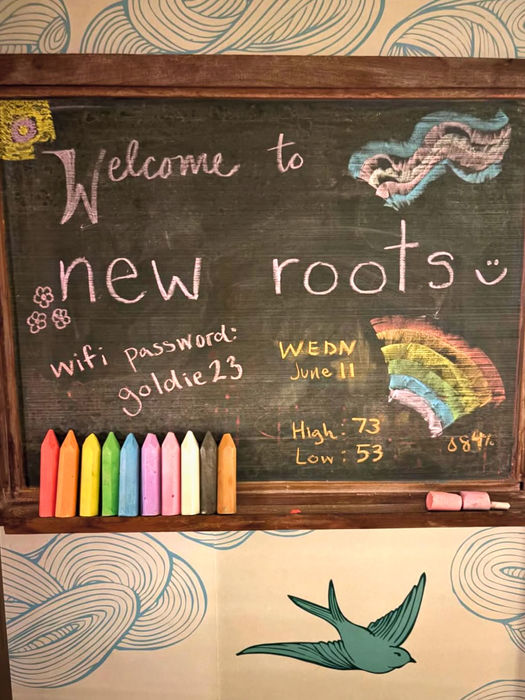 Welcome to
new roots
wifi password:
goldie23
WEDN
June 11
High: 73
Low: 53